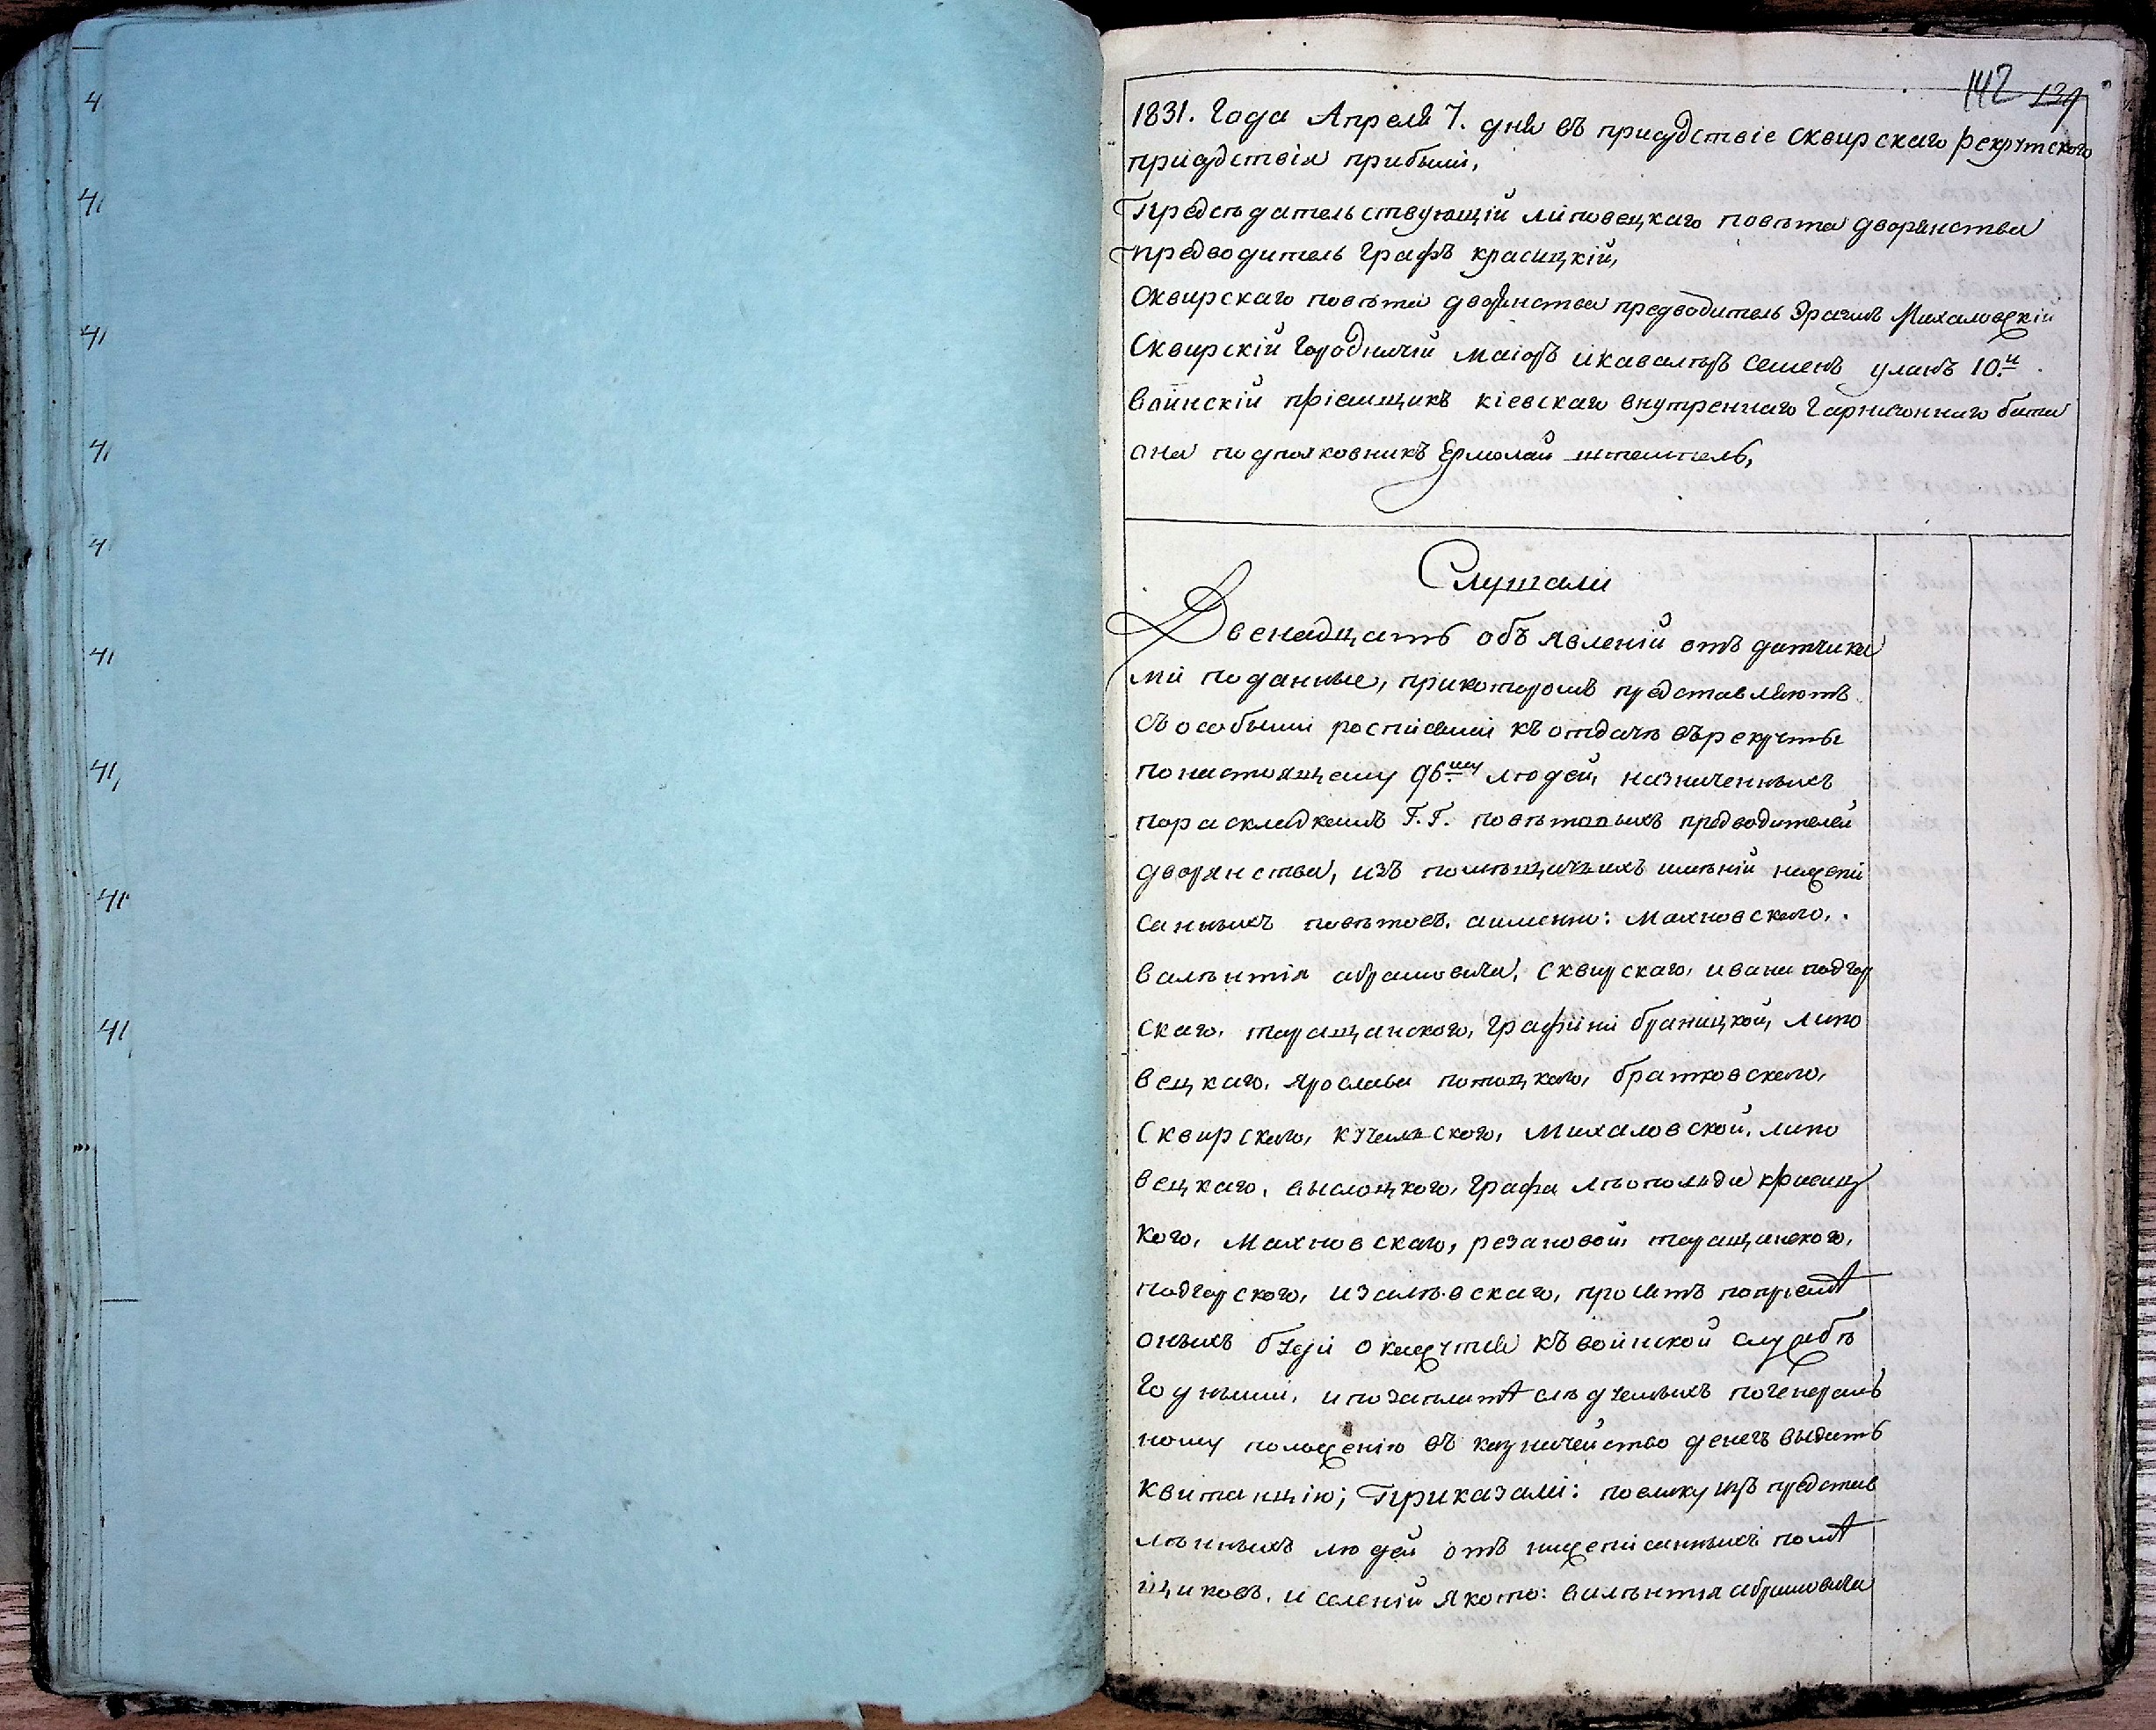 4
41
41
41
4
41
41,
41
41
142 139
1831. Года Апреля 7. дня въ присудствіе сквирскаго рекрутского
присудствія прибыли,
Предсѣдательствующій липовецкаго повѣта дворянства
предводитель Графъ красицкій,
Сквирскаго повѣта дворянства предводитель Эразмъ Михаловскій
Сквирскій Городничій маіоръ и кавалѣръ Семенъ уланъ 10.й
Воинскій пріемщикъ кіевскаго внутренняго Гарнизоннаго бата
она подполковникъ Ермолай
Слушали
Двенадцать объявленій отъ датчика
ми поданные, прикоторомъ представляютъ
съ особыми росписами къ отдачѣ въ рекруты
понастоящему 96му людей, назначенныхъ
пораскладкамъ Г. Г. повѣтовыхъ предводителей
дворянства, изъ помѣщичьихъ имѣній нижепи
санныхъ повѣтовъ. аименно: Махновского,
валѣнтія абрамовича, Сквирскаго, ивана подгор
скаго, таращанского, Графини браницкой, липо
вецкаго, Ярослава потоцкаго, братковского,
Сквирского, Михаловской, липо
вецкаго, выслоцкого, Графа лѣопольда красиц
кого, Махновскаго, резановой таращанского,
подгорского, изалѣвскаго, просятъ попріемѣ
оныхъ буде окажутся къ воинской службѣ
Годными, и позаплатѣ слѣдуемыхъ погенераль
ному положенію въ казначейство денегъ выдать
квитанцію; Приказали: поелику изъ представ
лѣнныхъ людей отъ нижеписанныхъ помѣ
щиковъ, и селеній якото: валѣнтія абрамовича